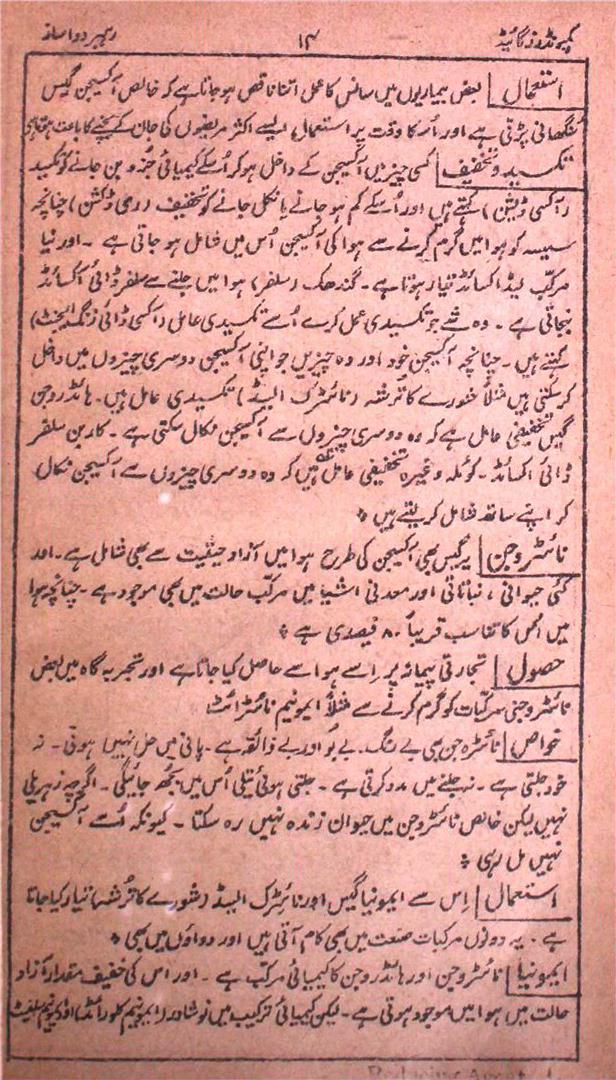 کمپونڈرز گائیڈ ۱۴ رہبر دوا ساز
استعمال بعض بیماریوں میں سانس کا عمل اتنا ناقص ہو جاتا ہے کہ خالص آکسیجن گیس
سنگھانی پڑتی ہے اور اُسکا وقت پر استعمال ایسے اکثر مریضوں کی جان کے بچنے کا باعث ہوتا ہے
تکسید و تخفیف کسی چیز میں آکسیجن کے داخل ہو کر اُسکے کیمیائی جُزو بن جانے کو تکسید
(آکسی ڈیشن) کہتے ہیں اور اُسکے کم ہو جانے یا نکل جانے کو تخفیف (ری ڈکشن) چنانچہ
سیسہ کو ہوا میں گرم کرنے سے ہوا کی آکسیجن اُس میں شامل ہو جاتی ہے ۔ اور نیا
مرکب لیڈ اکسائڈ تیار ہوتا ہے ۔ گندھک (سلفر) ہوا میں جلنے سے سلفر ڈائی آکسائڈ
بنجاتی ہے ۔ وہ شے جو تکسیدی عمل کرے اُسے تکسیدی عامل (اکسی ڈائی زنگ ایجنٹ)
کہتے ہیں ۔ چنانچہ آکسیجن خود اور وہ چیزیں جو اپنی آکسیجن دوسری چیزوں میں داخل
کر سکتی ہیں مثلاً شورے کا ترشہ (نائٹرک ایسڈ) تکسیدی عامل ہیں ۔ ہائڈروجن
گیس تخفیفی عامل ہے کہ وہ دوسری چیزوں سے آکسیجن نکال سکتی ہے ۔ کاربن سلفر
ڈائی اکسائڈ ۔ کوئلہ وغیرہ تخفیفی عامل ہیں کہ وہ دوسری چیزوں سے آکسیجن نکال
کر اپنے ساتھ شامل کر لیتے ہیں
نائٹروجن یہ گیس بھی آکسیجن کی طرح ہوا میں آزاد حیثیت سے بھی شامل ہے ۔ اور
کئی حیوانی ، نباتاتی اور معدنی اشیا میں مرکب حالت میں بھی موجود ہے ۔ چنانچہ ہوا
میں اس کا تناسب قریباً ۸۰ فیصدی ہے
حصول تجارتی پیمانہ پر اِسے ہوا سے حاصل کیا جاتا ہے اور تجربہ گاہ میں بعض
نائٹروجنی مرکبات کو گرم کرنے سے مثلاً ایمونیم نائٹرائٹ
خواص نائٹروجن بھی بے رنگ ۔ بے بُو اور بے ذائقہ ہے ۔ پانی میں حل نہیں ہوتی ۔ نہ
خود جلتی ہے ۔ نہ جلنے میں مدد کرتی ہے ۔ جلتی ہوئی تیلی اُس میں بجھ جائیگی ۔ اگرچہ زہریلی
نہیں لیکن خالص نائٹروجن میں حیوان زندہ نہیں رہ سکتا ۔ کیونکہ اُسے آکسیجن
نہیں مل رہی
استعمال اِس سے ایمونیا گیس اور نائٹرک ایسڈ (شورے کا تُرشہ) تیار کیا جاتا
ہے ۔ یہ دونوں مرکبات صنعت میں بھی کام آتی ہیں اور دواؤں میں بھی
ایمونیا نائٹروجن اور ہائڈروجن کا کیمیائی مرکب ہے ۔ اور اس کی خفیف مقدار آزاد
حالت میں ہوا میں موجود ہوتی ہے ۔ لیکن کیمیائی ترکیب میں نوشادر (ایمونیم کلورائڈ)